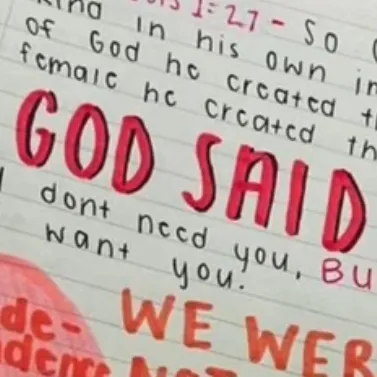 1:27 - So
kind in his own
of God he created
female he created
GOD SAID
dont need you, BU
want you.
de- WE WER